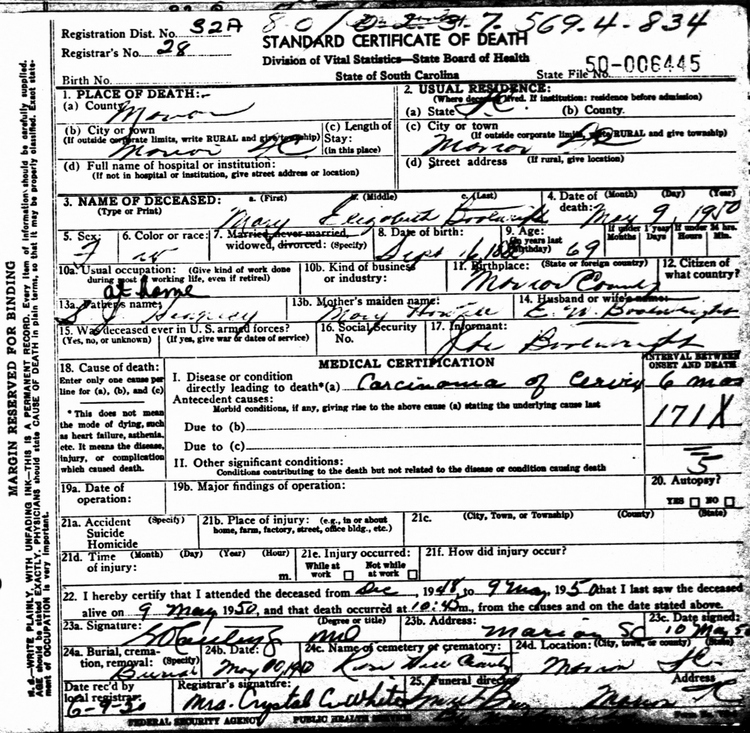 Registration Dist. No. 32A
Registrar's No. 28
569.4-834
STANDARD CERTIFICATE OF DEATH
Division of Vital Statistics—State Board of Health
State of South Carolina
50-006445
State File No.
Birth No.
1. PLACE OF DEATH:-
(a) County Marion
(b) City or town
(If outside corporate limits, write RURAL and give township)
Marion SC
(c) Length of Stay:
(in this place)
(d) Full name of hospital or institution:
(If not in hospital or institution, give street address or location)
2. USUAL RESIDENCE:
(Where deceased lived. If institution: residence before admission)
(a) State SC (b) County.
(c) City or town
(If outside corporate limits, write RURAL and give township)
Marion SC
(d) Street address (If rural, give location)
3. NAME OF DECEASED: a. (First) b. (Middle) c. (Last)
(Type or Print) Mary Elizabeth Boatwright
4. Date of death: (Month) (Day) (Year)
May 9, 1950
5. Sex: F
6. Color or race: W
7. Married, never married, widowed, divorced: (Specify)
8. Date of birth: Sept
9. Age: (In years last birthday) 69
If under 1 year Months Days
If under 24 hrs. Hours Min.
10a. Usual occupation: (Give kind of work done during most of working life, even if retired)
at home
10b. Kind of business or industry:
11. Birthplace: (State or foreign country)
Marion County
12. Citizen of what country?
13a. Father's name: S J
13b. Mother's maiden name: Mary
14. Husband or wife's name: E. W. Boatwright
15. Was deceased ever in U. S. armed forces?
(Yes, no, or unknown) (If yes, give war or dates of service)
16. Social Security No.
17. Informant: Joe Boatwright
MEDICAL CERTIFICATION
INTERVAL BETWEEN ONSET AND DEATH
18. Cause of death:
Enter only one cause per line for (a), (b), and (c)
* This does not mean the mode of dying, such as heart failure, asthenia, etc. It means the disease, injury, or complication which caused death.
I. Disease or condition directly leading to death*(a) Carcinoma of Cervix 6 mos
Antecedent causes:
Morbid conditions, if any, giving rise to the above cause (a) stating the underlying cause last
171X
Due to (b)
Due to (c)
5
II. Other significant conditions:
Conditions contributing to the death but not related to the disease or condition causing death
19a. Date of operation:
19b. Major findings of operation:
20. Autopsy?
YES NO
21a. Accident (Specify)
Suicide
Homicide
21b. Place of injury: (e.g., in or about home, farm, factory, street, office bldg., etc.)
21c. (City, Town, or Township) (County) (State)
21d. Time of injury: (Month) (Day) (Year) (Hour) m.
21e. Injury occurred:
While at work Not while at work
21f. How did injury occur?
22. I hereby certify that I attended the deceased from Dec, 1948, to 9 May, 1950 that I last saw the deceased
alive on 9 May 1950, and that death occurred at 10:45 m., from the causes and on the date stated above.
23a. Signature: (Degree or title) MD
23b. Address: Marion SC
23c. Date signed: 10 May 50
24a. Burial, cremation, removal: (Specify) Burial
24b. Date: May 10, 1950
24c. Name of cemetery or crematory: Rose Hill
24d. Location: (City, town, or county) (State)
Marion SC
Date rec'd by local registrar: 6-9-50
Registrar's signature: Mrs. Crystal C. White
25. Funeral director Address
Marion SC
FEDERAL SECURITY AGENCY PUBLIC HEALTH SERVICE
MARGIN RESERVED FOR BINDING
N. B.—WRITE PLAINLY, WITH UNFADING INK—THIS IS A PERMANENT RECORD. Every item of information should be carefully supplied. AGE should be stated EXACTLY. PHYSICIANS should state CAUSE OF DEATH in plain terms, so that it may be properly classified. Exact statement of OCCUPATION is very important.